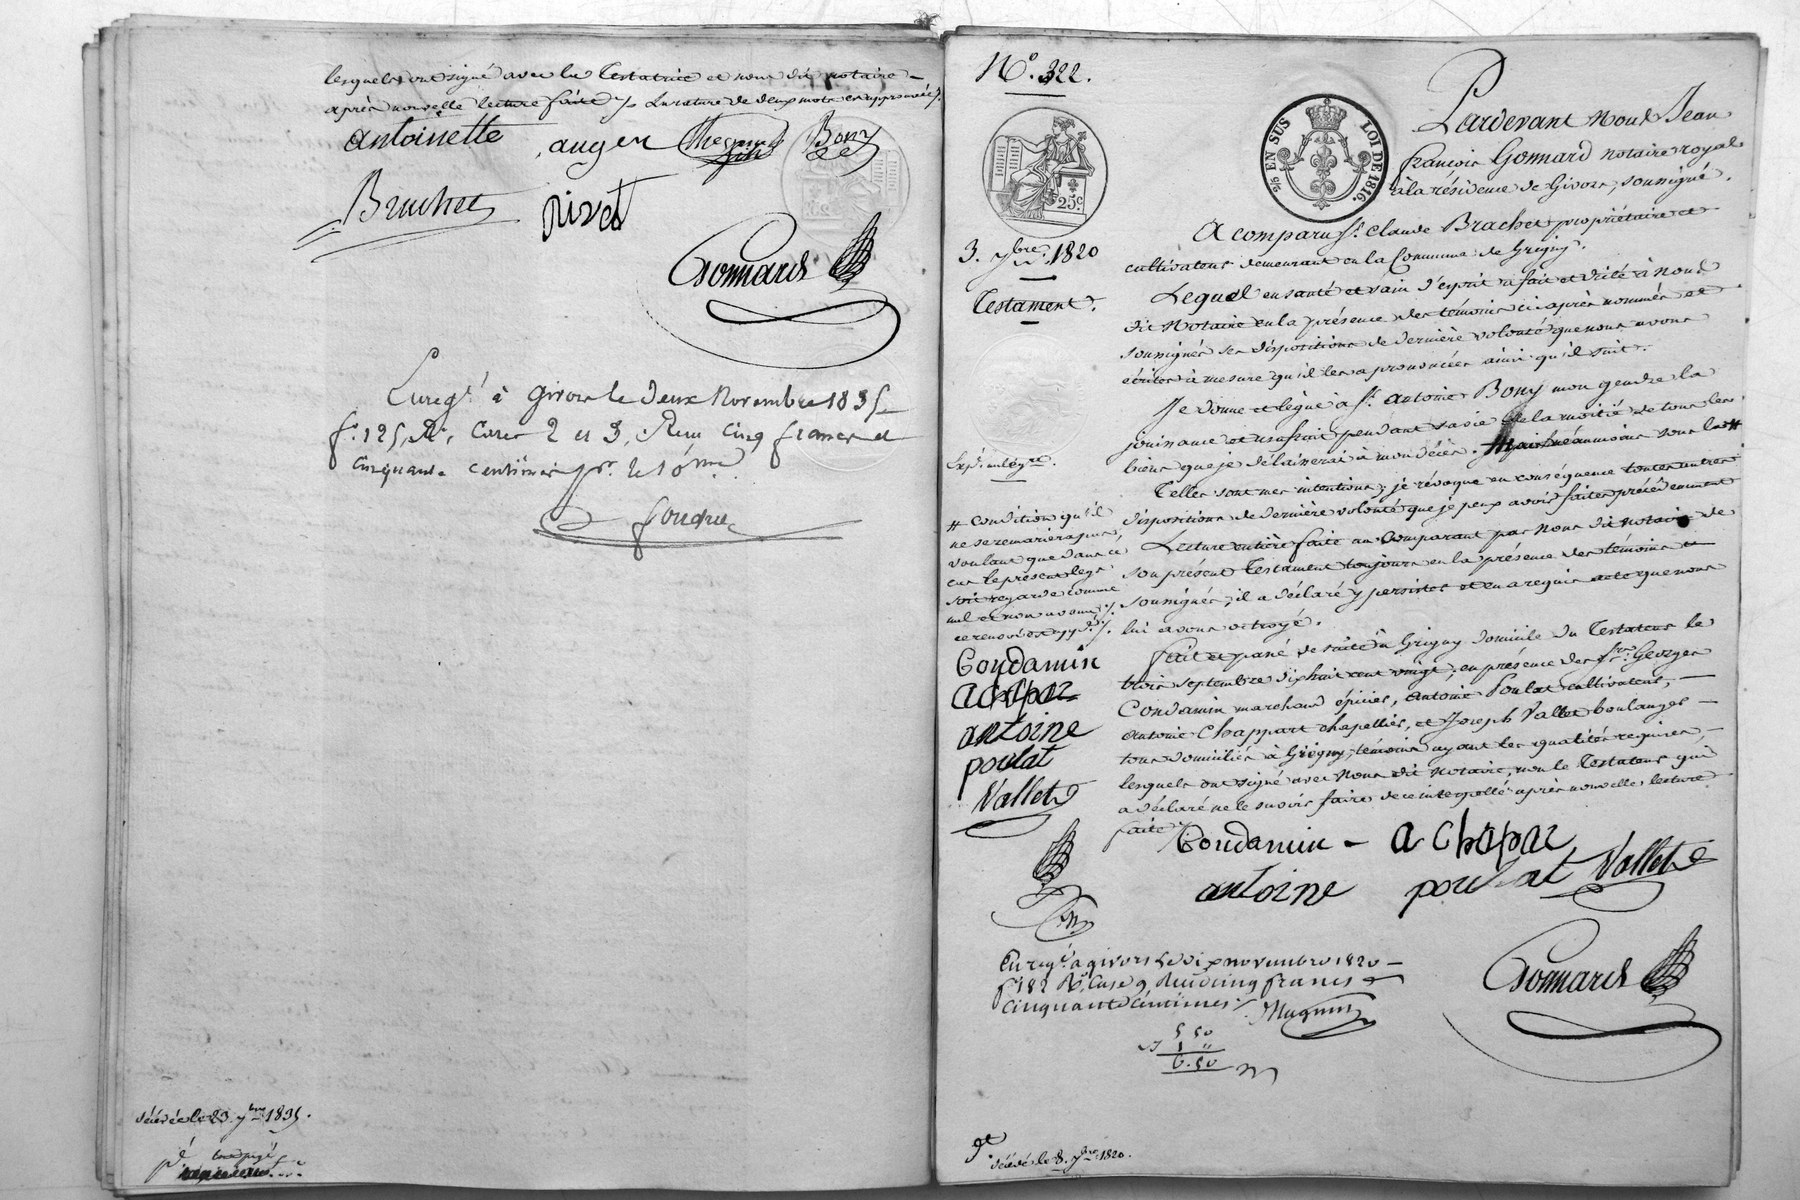 lesquels ont signé avec la Testatrice et nous dit notaire –
après nouvelle lecture faite ./. La rature de deux mots est approuvée ./.
antoinette auger Bony
Brachet rivat
Gonnard
Enregt. à Givors le deux Novembre 1835
f° 125, Ro, Cases 2 et 3, Reçu cinq francs et
cinquante centimes pr. le 10me.
décédée le 23 7bre 1835.
No. 322.
25c.
% EN SUS LOI DE 1816.
3. 7bre 1820
Testament.
Pardevant Nous Jean
françois Gonnard notaire royal
à la résidence de Givors, soussigné.
A comparu Sr. Claude Brachet propriétaire et
cultivateur demeurant en la Commune de Grigny.
Lequel en santé et sain d'esprit a fait et dicté à nous
dit Notaire en la présence des témoins ci après nommés et
soussignés ses dispositions de dernière volonté que nous avons
écrites à mesure qu'il les a prononcées ainsi qu'il suit.
Je donne et lègue à Sr. antoine Bony mon gendre la
jouissance et usufruit pendant sa vie de la moitié de tous les
biens que je délaisserai à mon décès. Mais néanmoins sous la #
Telles sont mes intentions; je révoque en conséquence toutes autres
dispositions de dernière volonté que je peux avoir faites précédemment
Lecture entière faite au Comparant par Nous dit notaire de
son présent Testament toujours en la présence des témoins
soussignés, il a déclaré y persister et en a requis acte que nous
lui avons octroyé.
fait et passé de suite à Grigny domicile du Testateur le
trois septembre dix huit cent vingt; en présence des srs. Georges
Condamin marchand épicier, antoine Poulat cultivateur, –
antoine Chappart chapellier, et Joseph Vallet boulanger –
tous domiciliés à Grigny, témoins ayant les qualités requises, –
lesquels ont signé avec Nous dit notaire, non le Testateur qui
a déclaré ne le savoir faire de ce interpellé après nouvelle lecture
faite ./.
Expé. intégre.
# condition qu'il
ne se remariera pas;
voulant que dans ce
cas le present legs
soit regardé comme
nul et non avenu ./.
ce renvoi est appé. ./.
Condamin
a chapar
antoine
poulat
Vallet
Condamin – a chapar
antoine poulat Vallet
Gonnard
Enregt. à givors le dix novembre 1820 –
f° 182 Ro. Case 9 Reçu cinq francs et
cinquante centimes ./.
Magnin
5 50
1 "
6.50
décédé le 8. 7bre 1820.